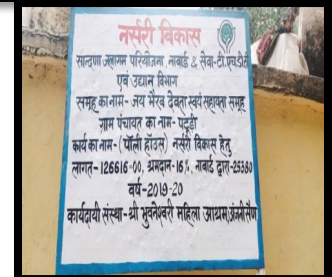 नर्सरी विकास
सान्दणा जलागम परियोजना नाबार्ड & सेवा-टी.एच.डी.सी
एवं उद्यान विभाग
समूह का नाम- जय भैरव देवता स्वयं सहायता समूह
ग्राम पंचायत का नाम- पट्डी
कार्य का नाम-(पॉली हॉउस) नर्सरी विकास हेतु
लागत-126616=00, श्रमदान-16%, नाबार्ड द्वारा-25360
वर्ष-2019-20
कार्यदायी संस्था-श्री भुवनेश्वरी महिला आश्रम,अंजनीसैंण